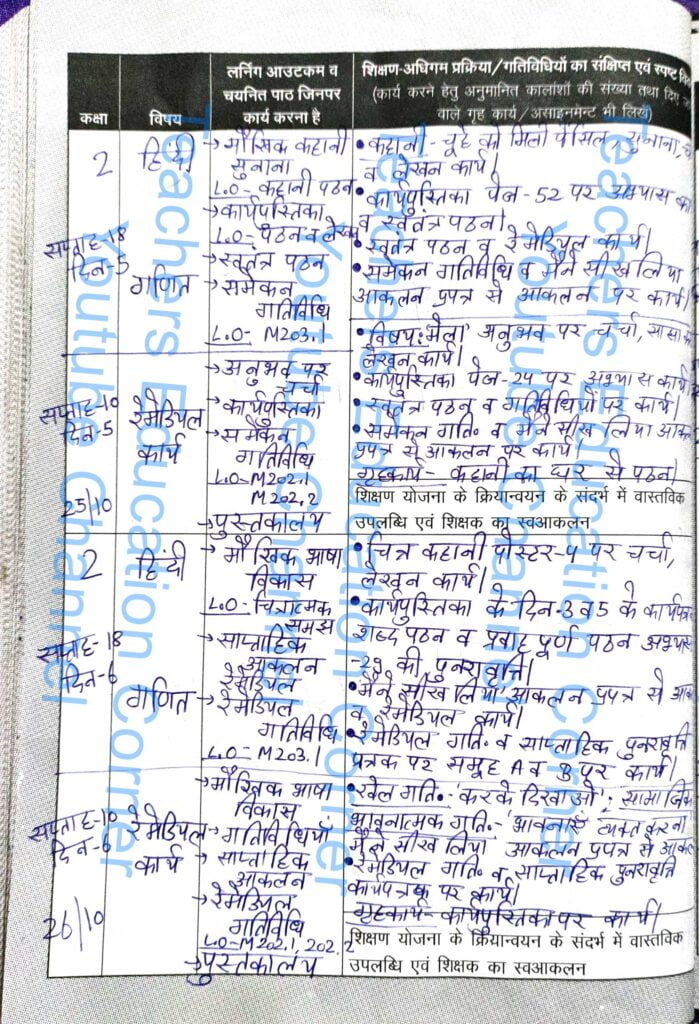 कक्षा
विषय
लर्निंग आउटकम व
चयनित पाठ जिनपर
कार्य करना है
शिक्षण-अधिगम प्रक्रिया/गतिविधियों का संक्षिप्त एवं स्पष्ट
(कार्य करने हेतु अनुमानित कालांशों की संख्या तथा दिए
वाले गृह कार्य/असाइनमेन्ट भी लिखें)
2
हिंदी
सप्ताह-18
दिन-5
गणित
→मौखिक कहानी
सुनाना
L.O-कहानी पठन
→कार्यपुस्तिका
L.O-पठन व लेखन
→स्वतंत्र पठन
→समेकन
गतिविधि
L.O- M203.1
•कहानी-चूहे को मिली पेंसिल, सुनाना,
व लेखन कार्य।
•कार्यपुस्तिका पेज-52 पर अभ्यास
व स्वतंत्र पठन।
•स्वतंत्र पठन व रेमेडियल कार्य।
•समेकन गतिविधि व मैंने सीख लिया
आकलन प्रपत्र से आकलन पर कार्य।
•विषय:'मेला' अनुभव पर चर्चा,
लेखन कार्य।
सप्ताह-10
दिन-5
रेमेडियल
कार्य
25/10
→अनुभव पर
चर्चा
→कार्यपुस्तिका
→समेकन
गतिविधि
L.O-M202.1
M202.2
→पुस्तकालय
•कार्यपुस्तिका पेज-24 पर अभ्यास कार्य
•स्वतंत्र पठन व गतिविधियों पर कार्य।
•समेकन गति. व मैंने सीख लिया
प्रपत्र से आकलन पर कार्य।
गृहकार्य- कहानी का घर से पठन।
शिक्षण योजना के क्रियान्वयन के संदर्भ में वास्तविक
उपलब्धि एवं शिक्षक का स्वआकलन
2
हिंदी
सप्ताह-18
दिन-6
गणित
→मौखिक भाषा
विकास
L.O-चित्रात्मक
समझ
→साप्ताहिक
आकलन
रेमेडियल
→रेमेडियल
गतिविधि
L.O-M203.1
•चित्र कहानी पोस्टर-4 पर चर्चा,
लेखन कार्य।
•कार्यपुस्तिका के दिन-3 व 5 के कार्यपत्रक
शब्द पठन व प्रवाहपूर्ण पठन अभ्यास
-29 की पुनरावृत्ति।
•'मैंने सीख लिया' आकलन प्रपत्र से
व रेमेडियल कार्य।
•रेमेडियल गति. व साप्ताहिक पुनरावृत्ति
पत्रक पर समूह A व B पर कार्य।
सप्ताह-10
दिन-6
रेमेडियल
कार्य
26/10
→मौखिक भाषा
विकास
→गतिविधियाँ
→साप्ताहिक
आकलन
→रेमेडियल
गतिविधि
L.O-M202.1, 202.2
→पुस्तकालय
•खेल गति.-'करके दिखाओ'; सामाजिक
भावनात्मक गति.-'भावनाएँ व्यक्त करना
•मैंने सीख लिया आकलन प्रपत्र से
•रेमेडियल गति. व साप्ताहिक पुनरावृत्ति
कार्यपत्रक पर कार्य।
गृहकार्य-कार्यपुस्तिका पर कार्य।
शिक्षण योजना के क्रियान्वयन के संदर्भ में वास्तविक
उपलब्धि एवं शिक्षक का स्वआकलन
Teachers Education Corner
Youtube Channel
Teachers Education Corner
Youtube Channel
Teachers Education Corner
Youtube Channel